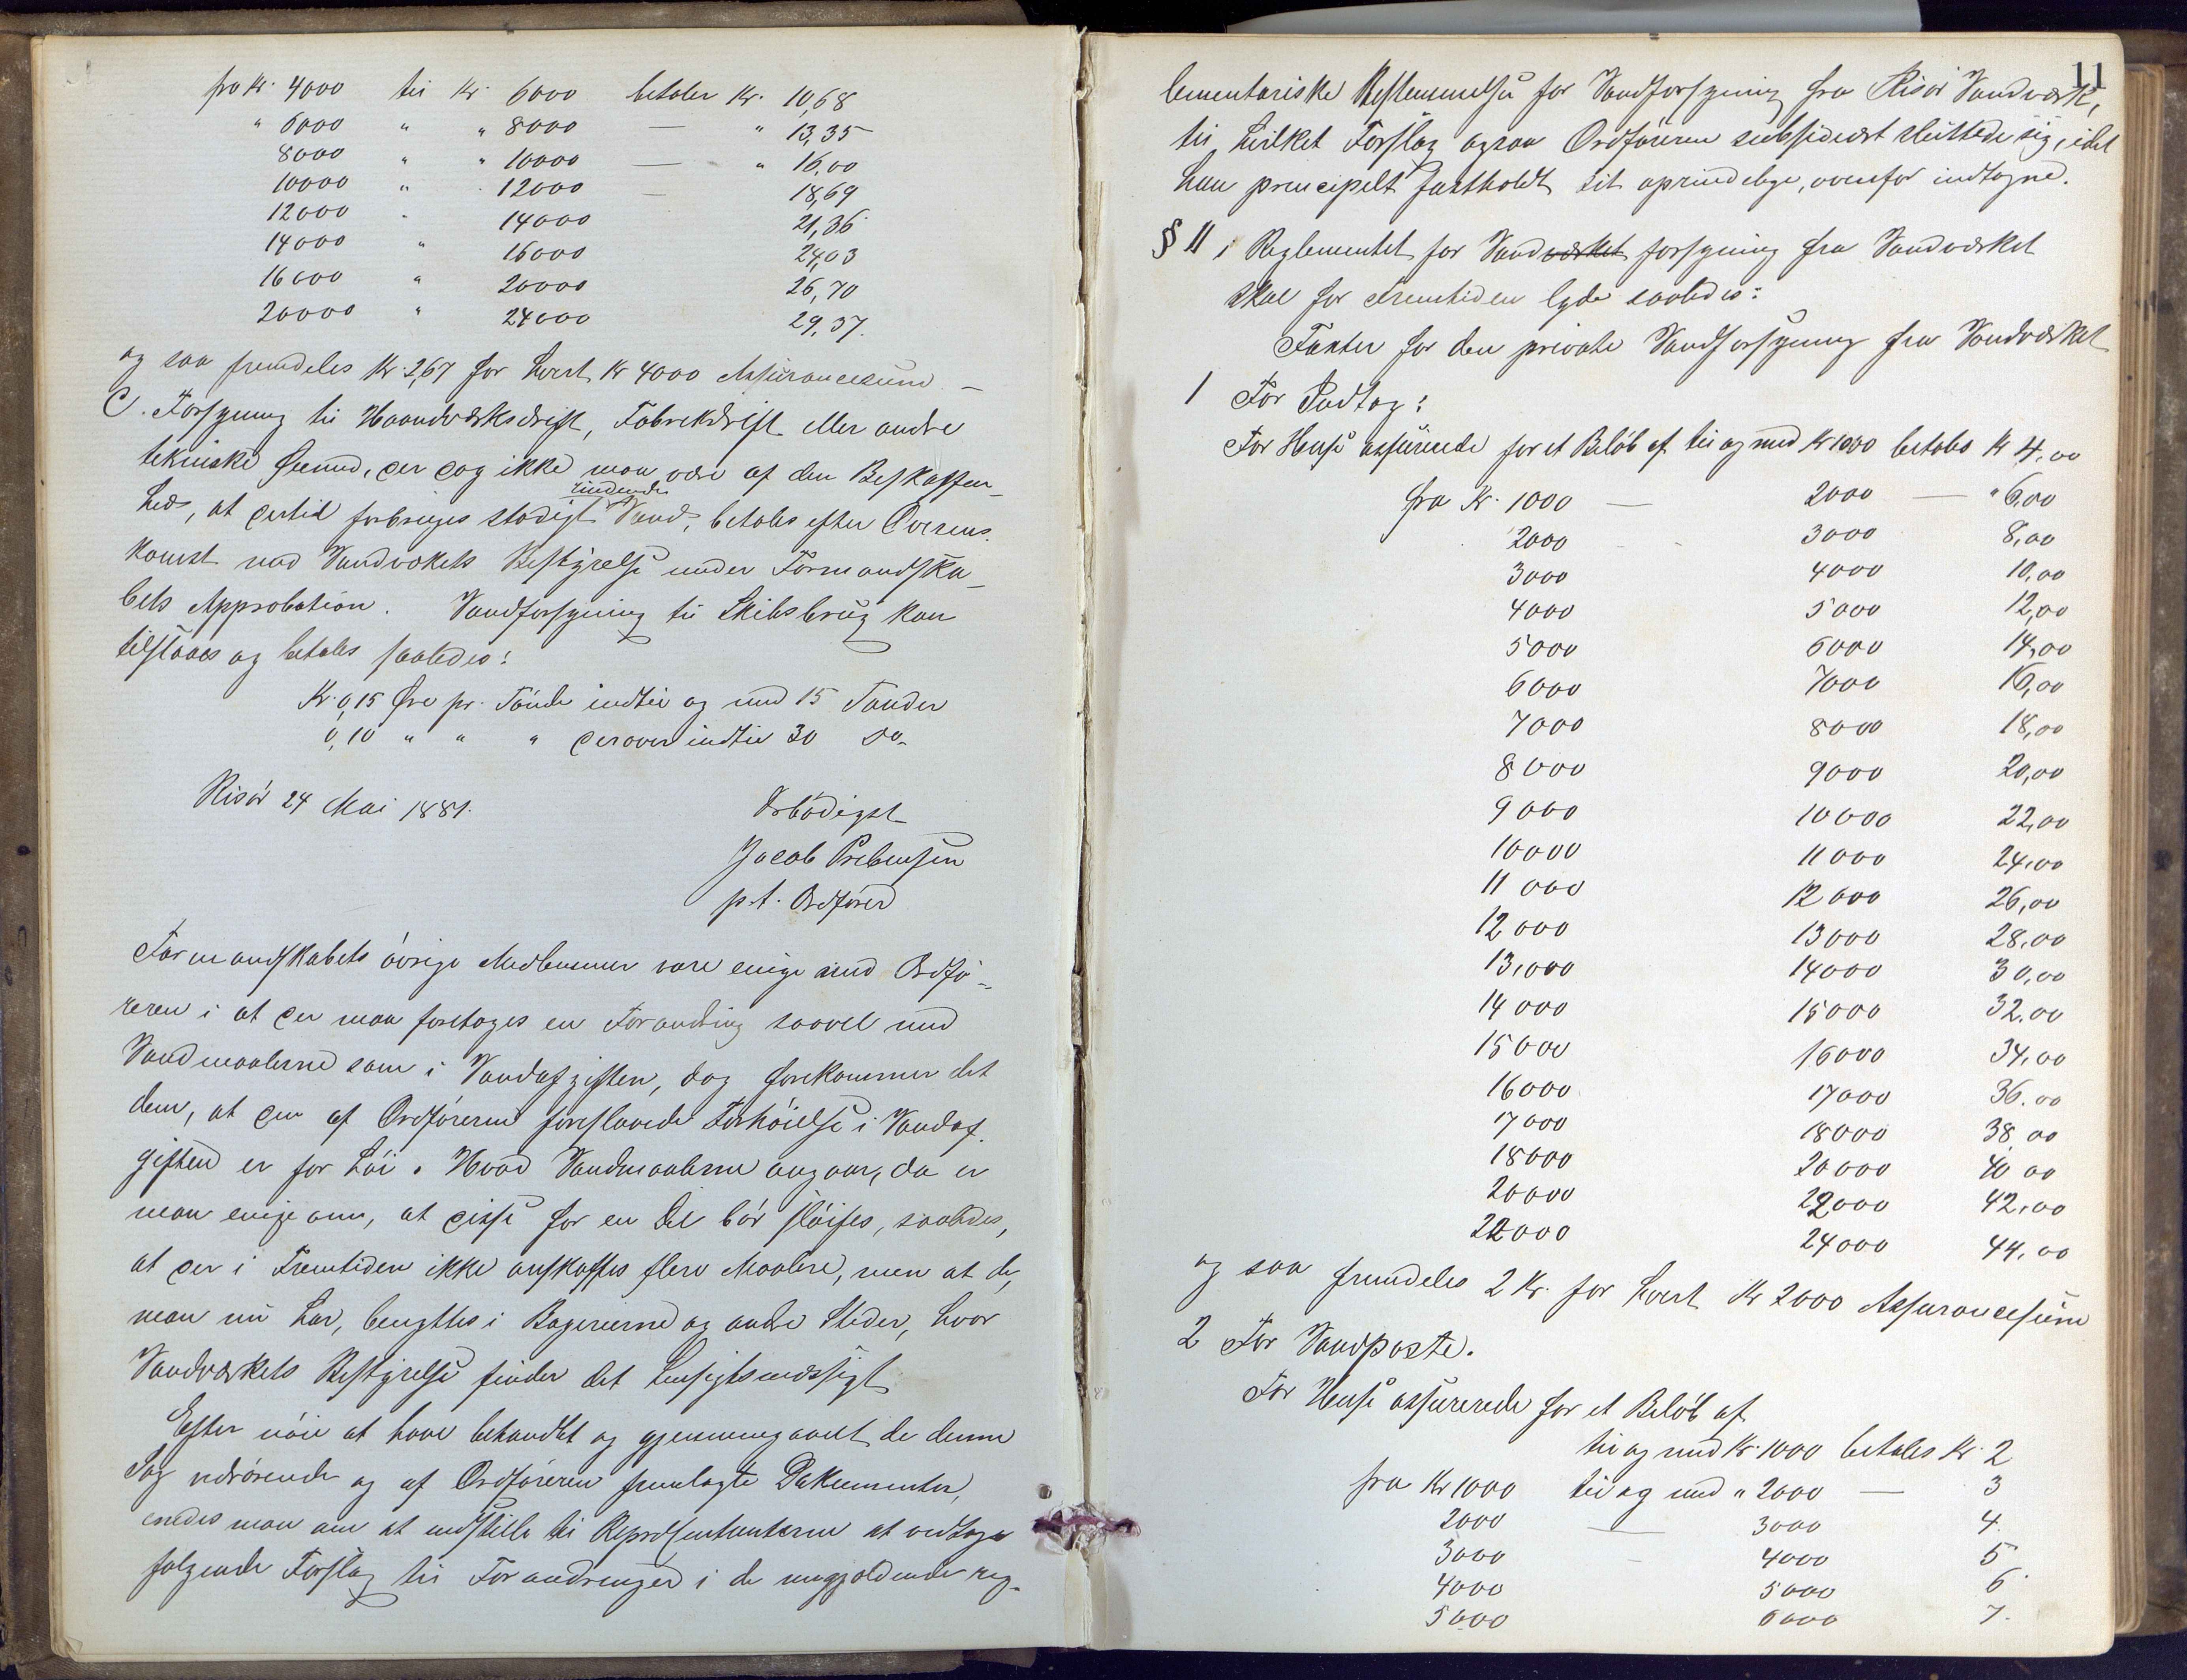 fra Kr. 4000 til Kr. 6000 betaler Kr. 10,68
" 6000 " " 8000 — " 13,35
8000 " " 10000 — " 16,00
10000 " 12000 — 18,69
12000 - 14000 21,36
14000 " 16000 24,03
16000 " 20000 26,70
20000 " 24000 29,37.
og saa fremdeles Kr. 2,67 for hvert Kr 4000 Assurancesum. —
C. Forsyning til Haandværksdrift, Fabrikdrift eller andre
tekniske Øiemed, der dog ikke maa være af den Beskaffen-
hed, at dertil forbruges stadigt rindende Vand, betales efter Overens-
komst med Vandværkets Bestyrelse under Formandska-
bets Approbation. Vandforsyning til Skibsbrug kan
tilstaaes og betales saaledes:
Kr. 0,15 Øre pr. Tønde indtil og med 15 Tønder
0,10 " " " derover indtil 30 do.
Risør 24 Mai 1881.
Ærbødigst
Jacob Prebensen
p.t. Ordfører
Formandskabets øvrige Medlemmer vare enige med Ordfø-
reren i at der maa foretages en Forandring saavel med
Vandmaalerne som i Vandafgiften, dog forekommer det
dem, at den af Ordføreren foreslaaede Forhøielse i Vandaf-
giften er for høi. Hvad Vandmaalerne angaar, da er
man enige om, at disse for en Del bør sløifes, saaledes,
at der i Fremtiden ikke anskaffes flere Maalere, men at de,
man nu har, benyttes i Bagerierne og andre Steder, hvor
Vandværkets Bestyrelse finder det hensigtsmæssigt
Efter nøie at have behandlet og gjennemgaaet de denne
Sag vedrørende og af Ordføreren fremlagte Dokumenter,
enedes man om at indstille til Repræsentanterne at vedtage
følgende Forslag til Forandringer i de nugjældende reg-
11
lementariske Bestemmelser for Vandforsyning fra Risør Vandværk,
til hvilket Forslag ogsaa Ordføreren subsidiært sluttede sig, idet
han principelt fastholdt sit oprindelige, ovenfor indtagne.
§ 11 i Reglementet for Vandværket forsyning fra Vandværket
skal for Fremtiden lyde saaledes:
Taxter for den private Vandforsyning fra Vandværket
1 For Indtag:
For Huse assurerede for et Beløb af til og med Kr 1000 betales Kr 4,00
fra Kr. 1000 — 2000 — " 6,00
2000 3000 8,00
3000 4000 10,00
4000 5000 12,00
5000 6000 14,00
6000 7000 16,00
7000 8000 18,00
8000 9000 20,00
9000 10000 22,00
10000 11000 24,00
11000 12000 26,00
12000 13000 28,00
13,000 14000 30,00
14000 15000 32.00
15000 16000 34,00
16000 17000 36.00
17000 18000 38 00
18000 20000 40 00
20000 22000 42,00
22000 24000 44,00
og saa fremdeles 2 Kr. for hvert Kr 2000 Assurancesum
2 For Vandposte.
For Huse assurerede for et Beløb af
til og med Kr. 1000 betales Kr. 2
fra Kr 1000 til og med " 2000 — 3
2000 — 3000 4.
3000 - 4000 5
4000 5000 6
5000 6000 7.